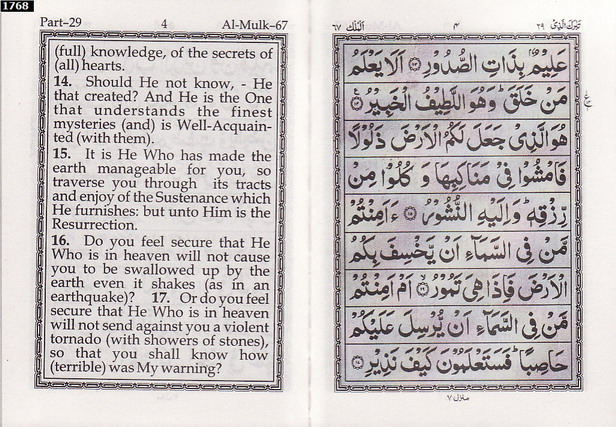 1768
Part–29 4 Al-Mulk–67
(full) knowledge, of the secrets of
(all) hearts.
14. Should He not know, - He
that created? And He is the One
that understands the finest
mysteries (and) is Well-Acquain-
ted (with them).
15. It is He Who has made the
earth manageable for you, so
traverse you through its tracts
and enjoy of the Sustenance which
He furnishes: but unto Him is the
Resurrection.
16. Do you feel secure that He
Who is in heaven will not cause
you to be swallowed up by the
earth even it shakes (as in an
earthquake)? 17. Or do you feel
secure that He Who is in heaven
will not send against you a violent
tornado (with showers of stones),
so that you shall know how
(terrible) was My warning?
تبرك الذى ٢٩ ٤ الملك ٦٧
عَلِيْمٌۢ بِذَاتِ الصُّدُوْرِ ۝ اَلَا يَعْلَمُ
مَنْ خَلَقَ ؕ وَهُوَ اللَّطِيْفُ الْخَبِيْرُ ۝
هُوَ الَّذِىْ جَعَلَ لَكُمُ الْاَرْضَ ذَلُوْلًا
فَامْشُوْا فِىْ مَنَاكِبِهَا وَ كُلُوْا مِنْ
رِّزْقِهٖ ؕ وَاِلَيْهِ النُّشُوْرُ ۝ ءَاَمِنْتُمْ
مَّنْ فِى السَّمَآءِ اَنْ يَّخْسِفَ بِكُمُ
الْاَرْضَ فَاِذَا هِىَ تَمُوْرُ ۝ اَمْ اَمِنْتُمْ
مَّنْ فِى السَّمَآءِ اَنْ يُّرْسِلَ عَلَيْكُمْ
حَاصِبًا ؕ فَسَتَعْلَمُوْنَ كَيْفَ نَذِيْرِ ۝
منزل ٧